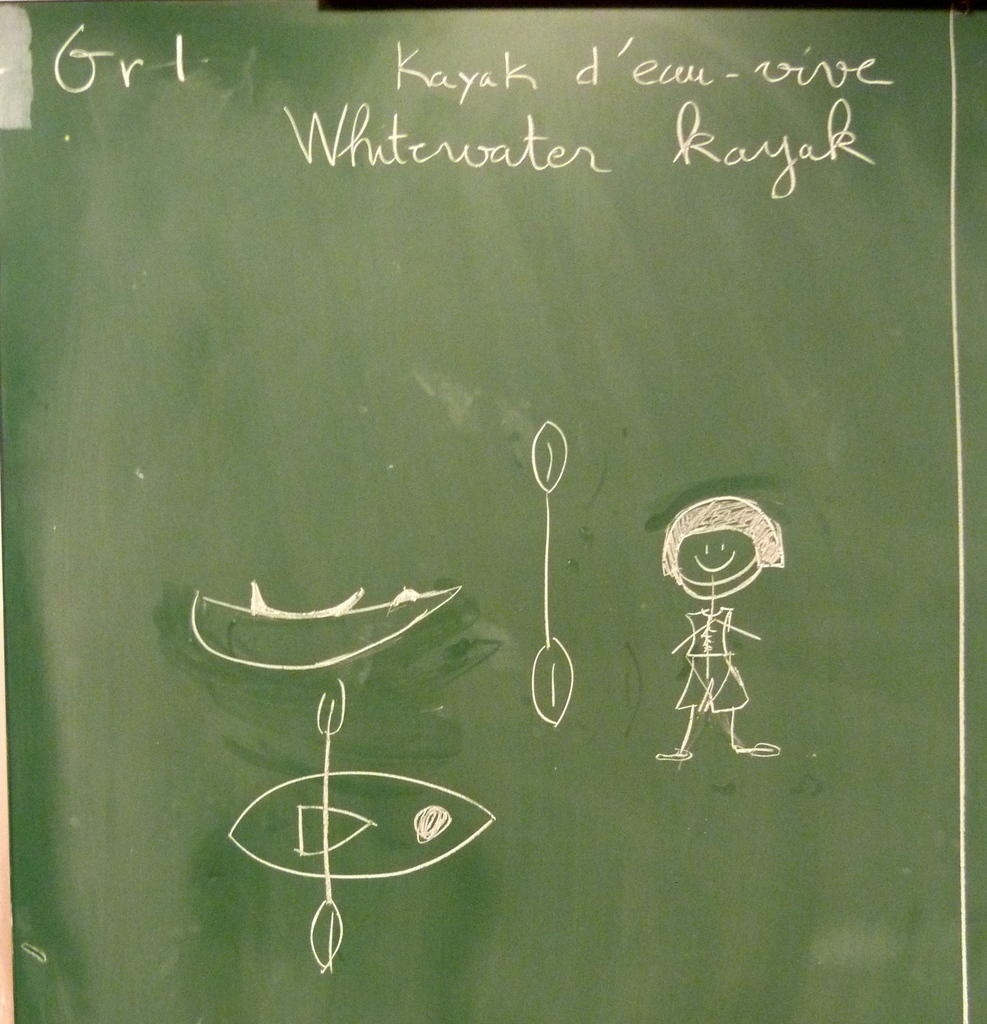 Gr 1
Kayak d'eau-vive
Whitewater kayak